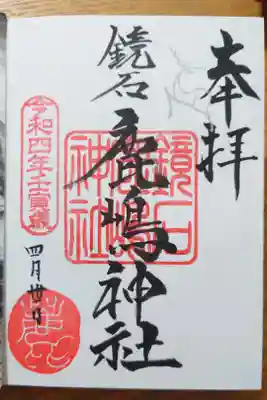 奉拝
鏡石
鹿嶋神社
鏡石
鹿嶋
神社
令和四年壬寅歳
四月 日